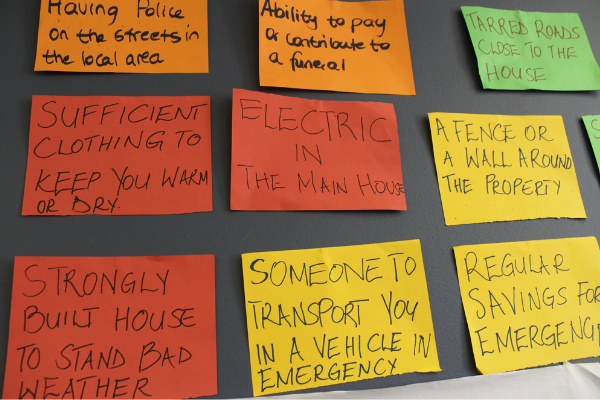 Having Police
on the streets in
the local area
Ability to pay
or contribute to
a funeral
TARRED ROADS
CLOSE TO THE
HOUSE
SUFFICIENT
CLOTHING TO
KEEP YOU WARM
OR DRY.
ELECTRIC
IN
THE MAIN HOUSE
A FENCE OR
A WALL AROUND
THE PROPERTY
STRONGLY
BUILT HOUSE
TO STAND BAD
WEATHER
SOMEONE TO
TRANSPORT YOU
IN A VEHICLE IN
EMERGENCY
REGULAR
SAVINGS FOR
EMERGENC